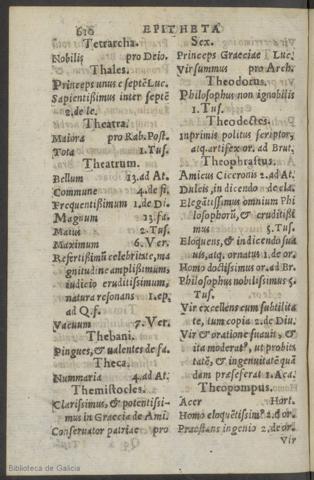 610 EPITHETA
Tetrarcha.
Nobilis pro Deio.
Thales.
Princeps unus e septē Luc.
Sapientißimus inter septē
2. de le.
Theatra.
Maiora pro Rab. Post.
Tota 1. Tus.
Theatrum.
Bellum 13. ad At.
Commune 4. de fi.
Frequentißimum 1. de Di.
Magnum 13. fa.
Maius 2. Tus.
Maximum 6. Ver.
Refertißimū celebritate, ma
gnitudine amplißimum,
iudicio eruditißimum,
natura resonans 1. ep.
ad Q. f.
Vacuum 7. Ver.
Thebani.
Pingues, & ualentes de fa.
Theca.
Nummaria 4. ad At.
Themistocles.
Clarißimus, & potentißi-
mus in Graecia de Ami.
Conseruator patriae pro
Sex.
Princeps Graeciae Luc.
Vir summus pro Arch.
Theodorus.
Philosophus non ignobilis
1. Tus.
Theodectes.
Inprimis politus scriptor,
atq. artifex or. ad Brut.
Theophrastus.
Amicus Ciceronis 2. ad At.
Dulcis, in dicendo de cla.
Elegātissimus omnium Phi
losophorū, & eruditißi
mus 5. Tus.
Eloquens, & in dicendo sua
uis, atq. ornatus 1. de or.
Homo doctissimus or. ad Br.
Philosophus nobilissimus 5.
Tus.
Vir excellens cum subtilita
te, tum copia 2. de Diu.
Vir & oratione suauis, &
ita moderat9, ut probita
tatē, & ingenuitatē quā
dam praeseferat 1. Aca.
Theopompus.
Acer Hort.
Homo eloquētißim9 2. d or.
Praestans ingenio 2. de or.
Vir
Biblioteca de Galicia